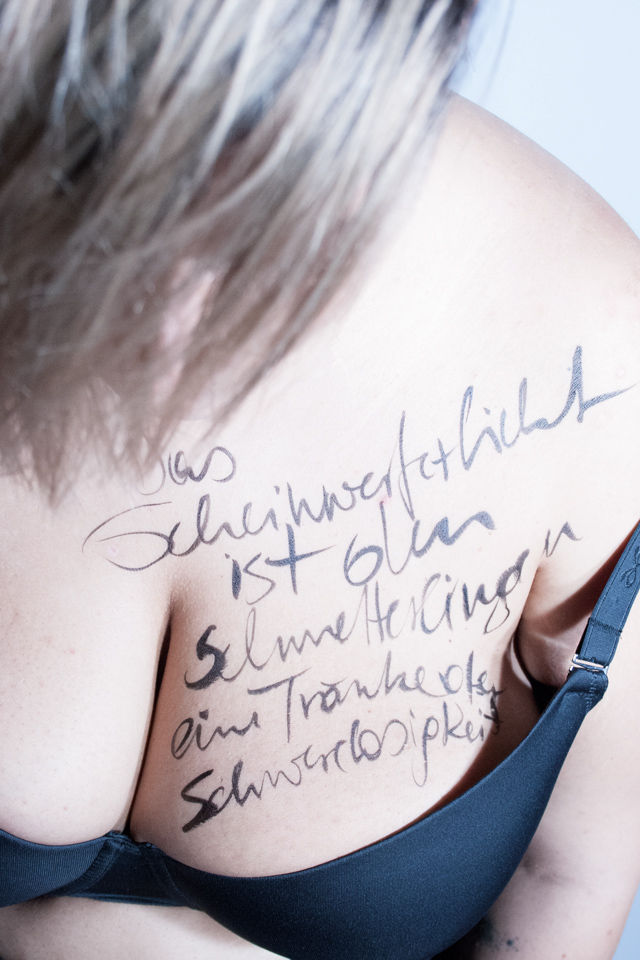 Das
Scheinwerferlicht
ist den
Schmetterlingen
eine Tränke der
Schwerelosigkeit